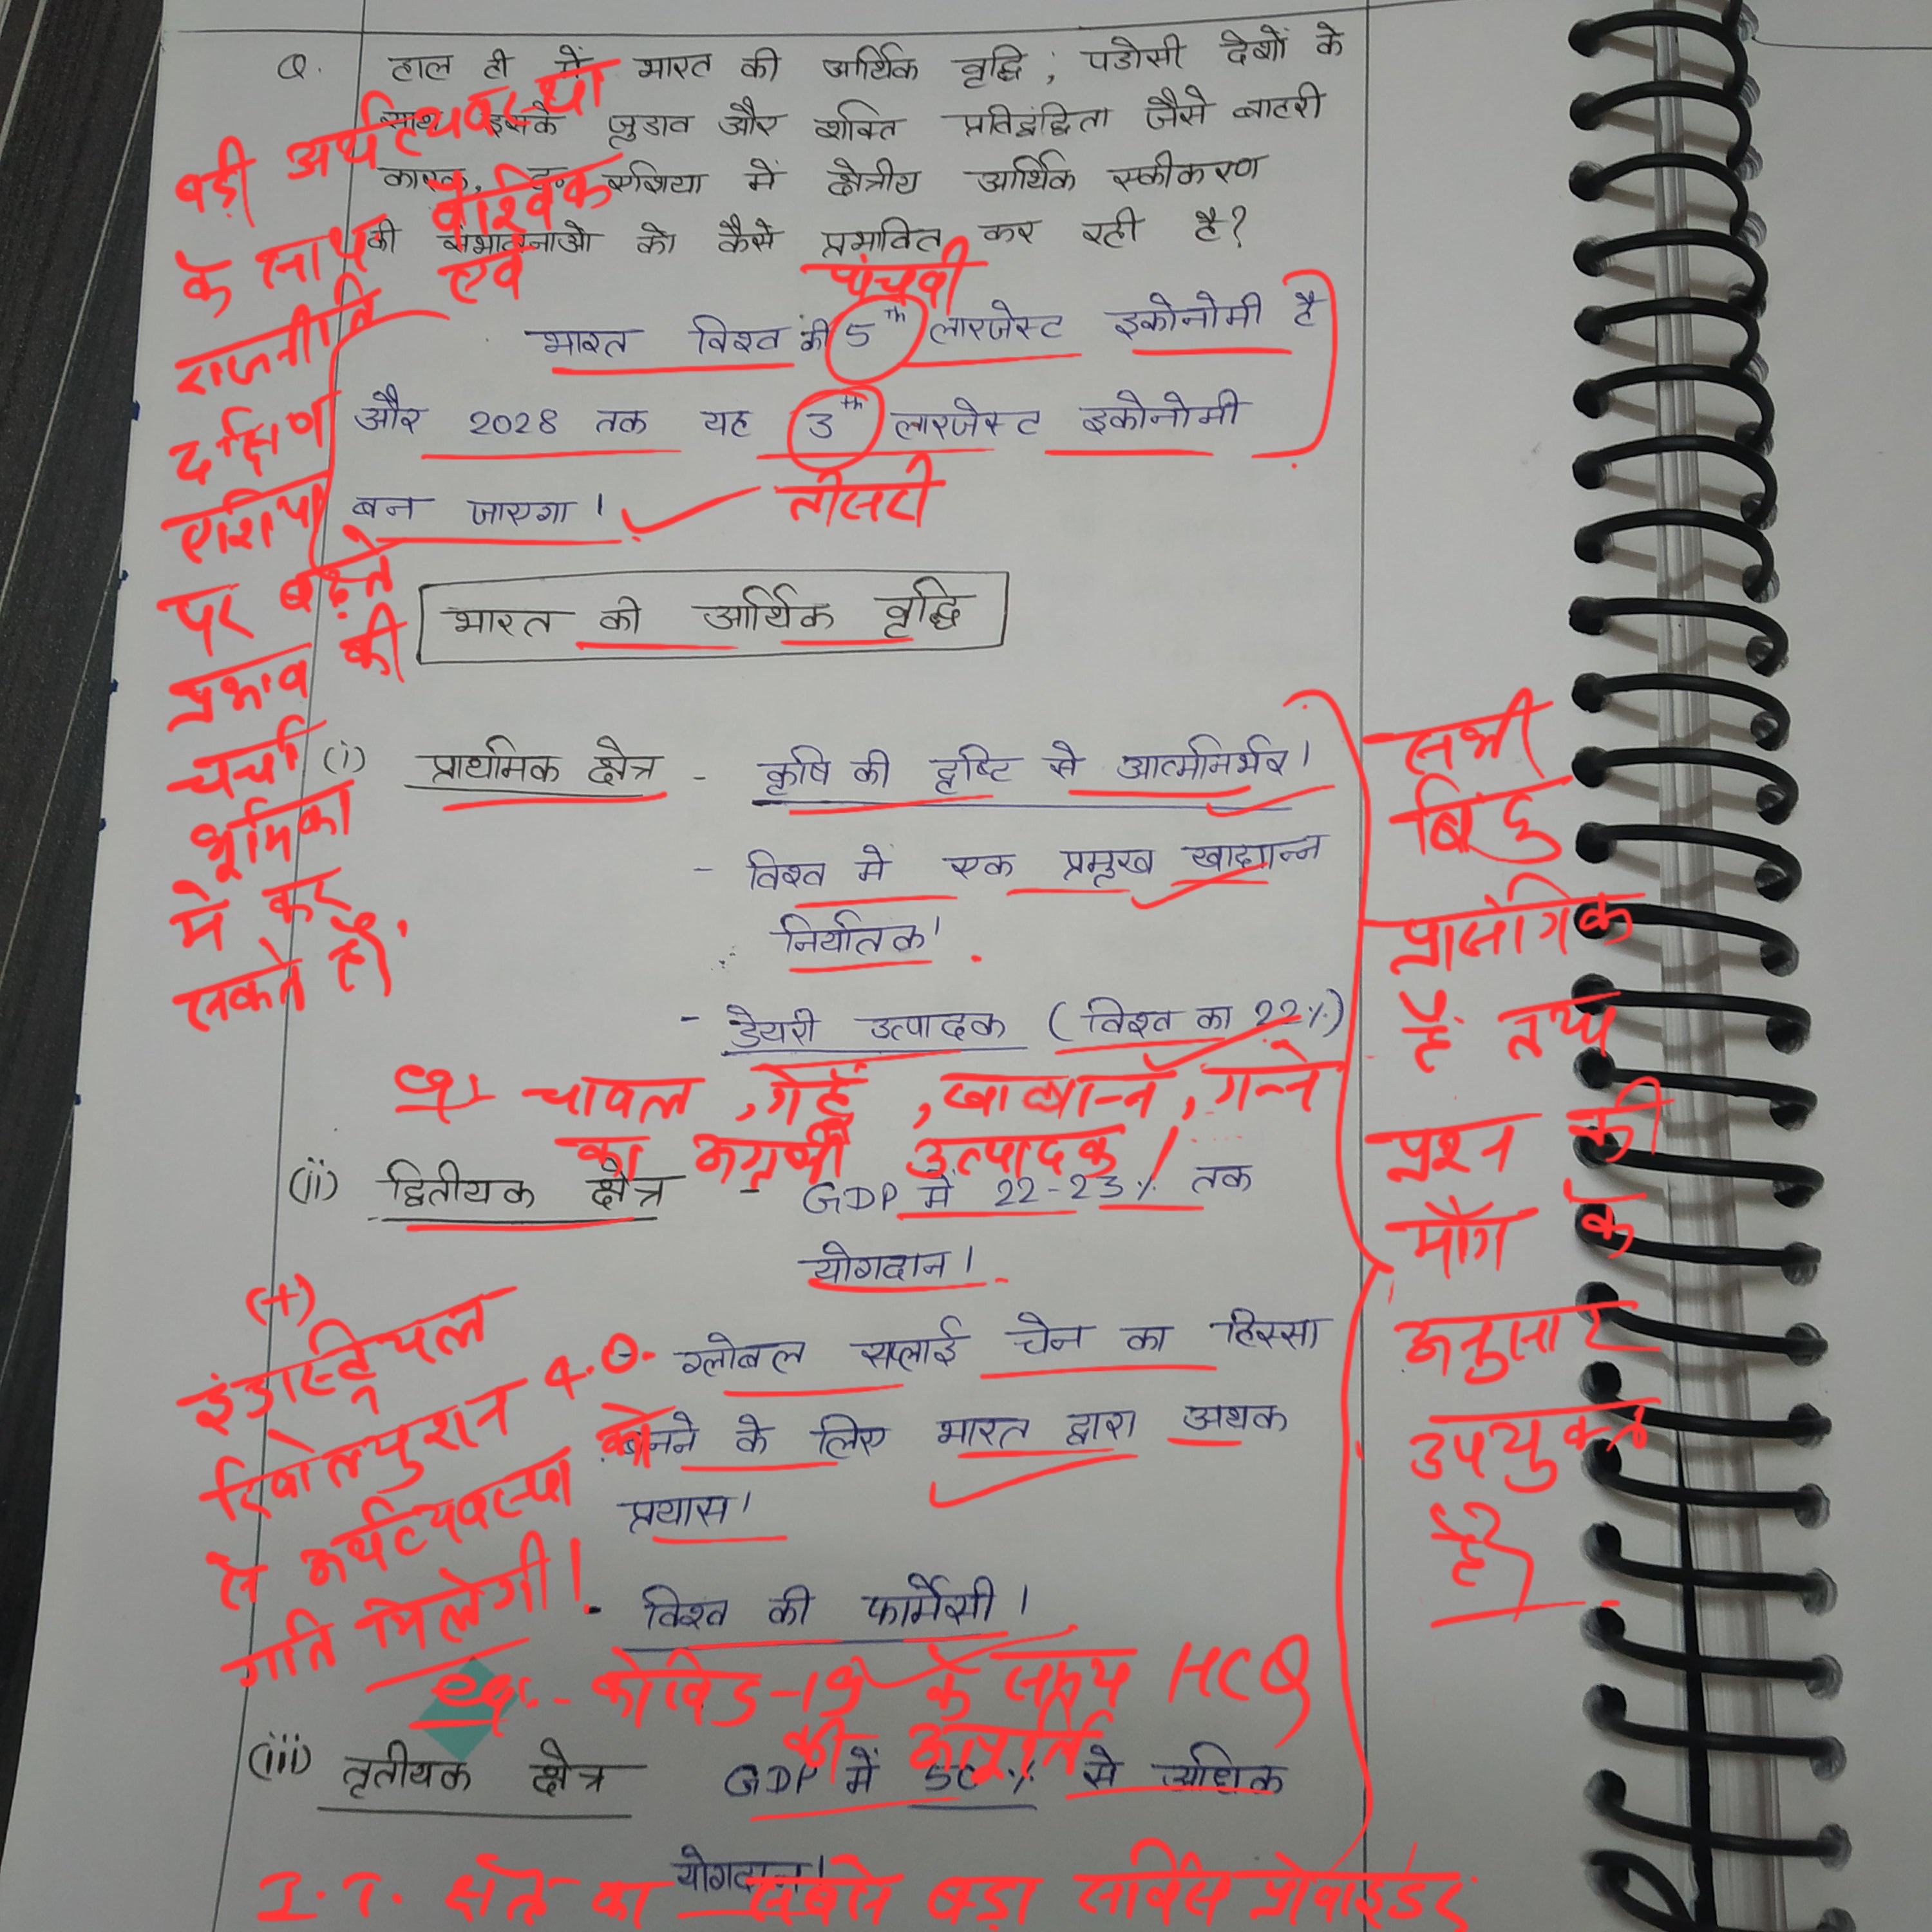 Q. हाल ही में भारत की आर्थिक वृद्धि, पडोसी देशों के
साथ इसके जुडाव और शक्ति प्रतिद्वंद्विता जैसे बाहरी
कारक, एशिया में क्षेत्रीय आर्थिक एकीकरण
की संभावनाओ को कैसे प्रभावित कर रही है?
पंचवी
भारत विश्व की 5th लारजेस्ट इकोनोमी है
और 2028 तक यह 3th लारजेस्ट इकोनोमी
बन जाएगा।
तीसरी
बड़ी अर्थव्यवस्था
के साथ वैश्विक
राजनीति एवं
दक्षिण
एशिया
पर बढ़ते
प्रभाव की
चर्चा
भूमिका
में कर
सकते हैं।
भारत की आर्थिक वृद्धि
(i) प्राथमिक क्षेत्र - कृषि की दृष्टि से आत्मनिर्भर।
- विश्व में एक प्रमुख खाद्यान्न
निर्यातक।
- डेयरी उत्पादक (विश्व का 22%)
eg:- चावल, गेहूँ, खाद्यान्न, गन्ने
का अग्रणी उत्पादक।
(ii) द्वितीयक क्षेत्र - GDP में 22-23% तक
योगदान।
- ग्लोबल सप्लाई चेन का हिस्सा
बनने के लिए भारत द्वारा अथक
प्रयास।
- विश्व की फार्मेसी।
(+)
इंडास्ट्रियल
रिवोल्युशन 4.0
से अर्थव्यवस्था को
गति मिलेगी!
eg:- कोविड-19 के समय HCQ
की आपूर्ति
(iii) तृतीयक क्षेत्र GDP में 50% से अधिक
योगदान।
I.T. क्षेत्र का सबसे बड़ा सर्विस प्रोवाइडर
सभी
बिंदु
प्रासंगिक
हैं तथा
प्रश्न की
माँग के
अनुसार
उपयुक्त
है।